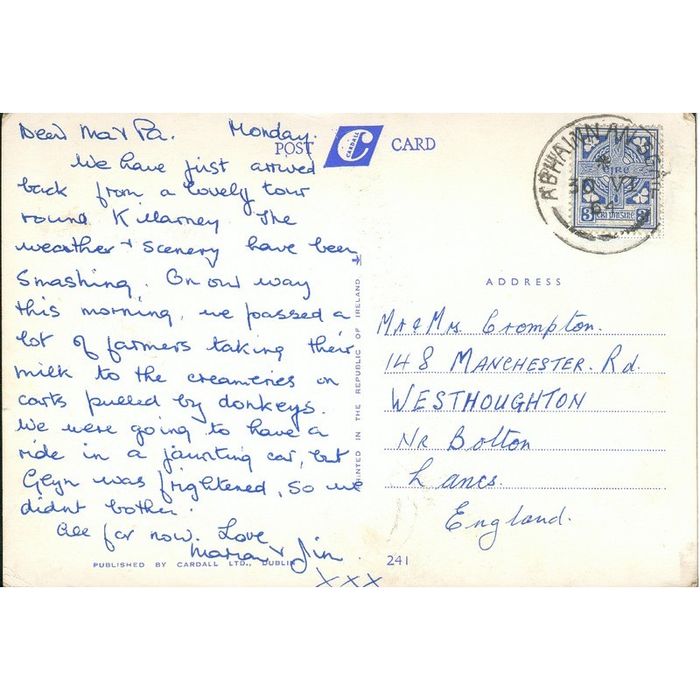 Dear Ma & Pa. Monday.
We have just arrived
back from a lovely tour
round Killarney The
weather & scenery have been
smashing. On our way
this morning, we passed a
lot of farmers taking their
milk to the creameries on
carts pulled by donkeys.
We were going to have a
ride in a jaunting car, but
Glyn was frightened, so we
didnt bother.
All for now. Love
Marian & Jim
XXX
POST CARD
CARDALL
C
PRINTED IN THE REPUBLIC OF IRELAND
PUBLISHED BY CARDALL LTD., DUBLIN
241
30 VI
64
EIRE
3
ADDRESS
Mr & Mrs. Crompton.
148 MANCHESTER. Rd.
WESTHOUGHTON
Nr Bolton
Lancs.
England.